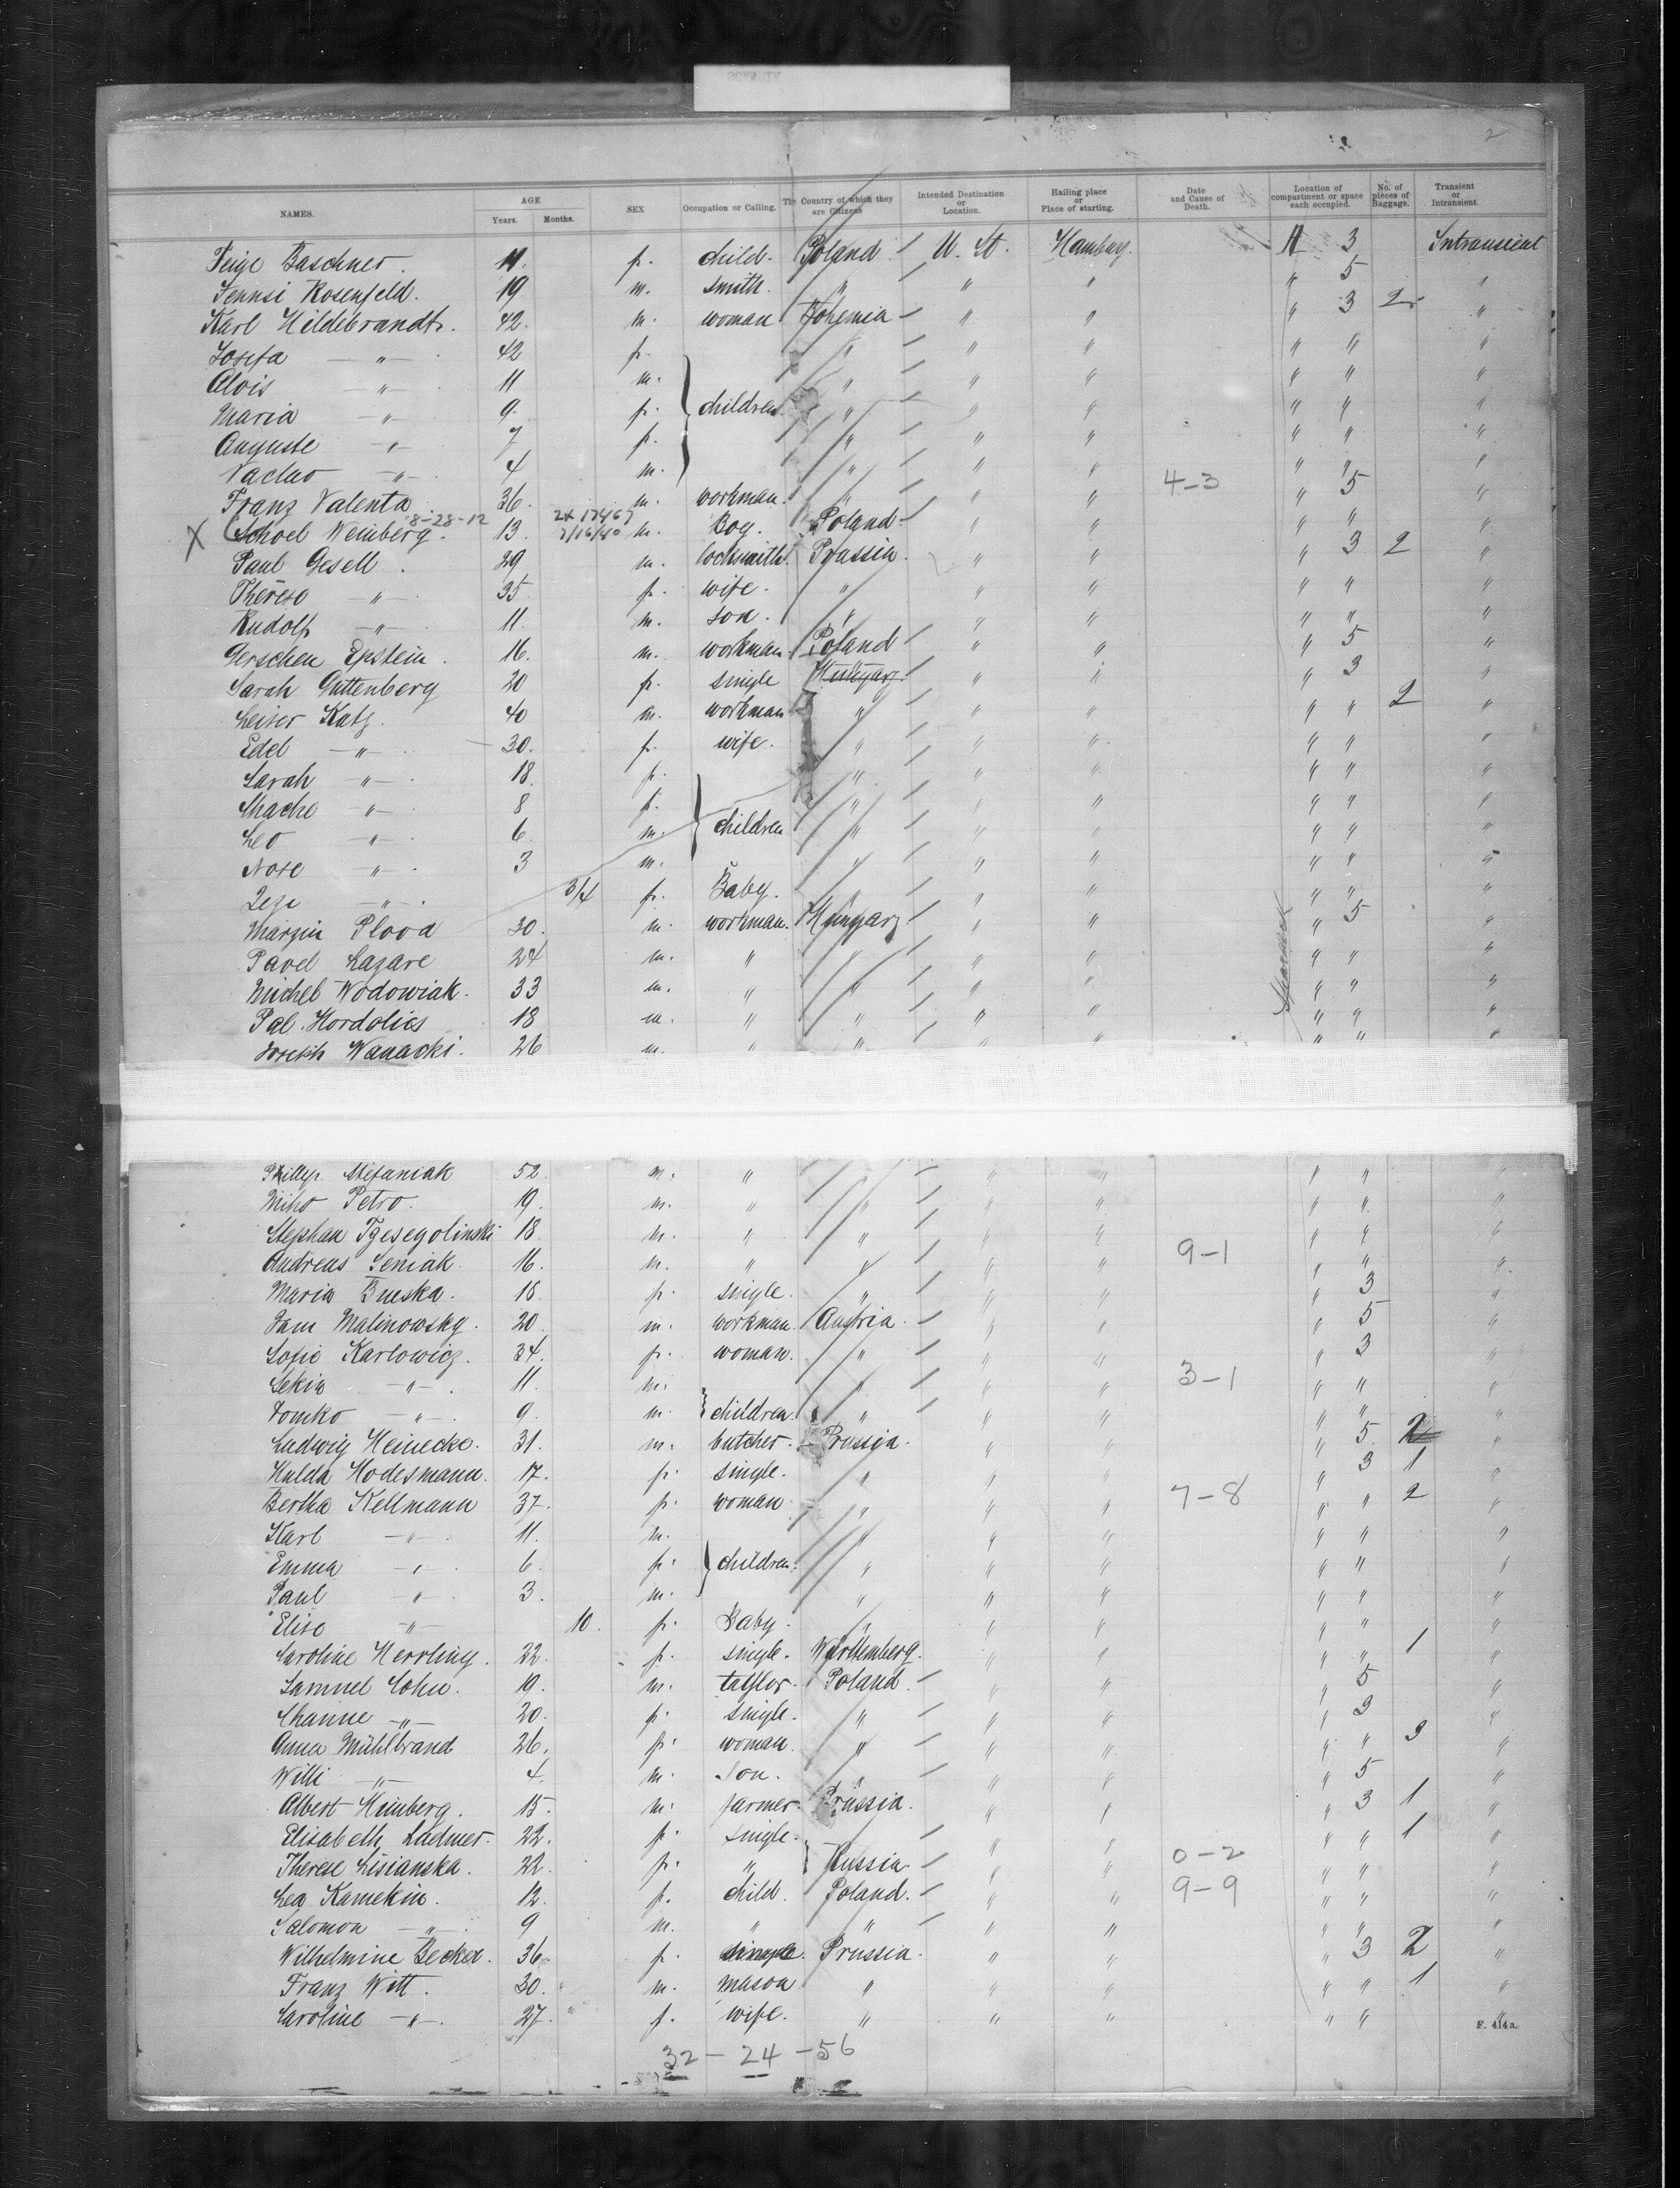 2
NAMES. AGE Years. Months. SEX Occupation or Calling. The Country of which they are Citizens Intended Destination or Location. Hailing place or Place of starting. Date and Cause of Death. Location of compartment or space each occupied. No. of pieces of Baggage. Transient or Intransient.
Feige Baschner. 11. f. child. Poland U. St. Hamburg. 3 Intransient
Rosenfeld. 19 m. smith. " " " " 5 "
Karl Hildebrandt. 42. m. woman Bohemia " " " 3 2 "
Josefa —"— 42 f. " " " " " "
Alois —"— 11 m. " " " " " "
Maria —"— 9 f. children " " " " " "
Auguste —"— 7 f. " " " " " "
Vaclav —"— 4 m. " " " " " "
Franz Valenta 36. m. workman. " " " 4-3 " 5 "
X Schoel Weinberg. 8-28-12 13. 2x 17467 7/16/40 m. Boy. Poland " " " " "
Paul Gesell. 29 m. locksmith. Prussia. " " " 3 2 "
Therese —"— 35 f. wife. " " " " " "
Rudolf —"— 11. m. son. " " " " " "
Gerschen Epstein. 16. m. workman Poland " " " 5 "
Sarah Guttenberg 20 f. single Hungary " " " 3 "
Leiser Katz. 40 m. workman " " " " " 2 "
Edel —"— 30. f. wife. " " " " " "
Sarah —"— 18. f. " " " " " "
—"— 8 f. children " " " " " "
Leo —"— 6 m. " " " " " "
—"— 3 m. " " " " " "
—"— 3/4 f. Baby. " " " " " "
Plova 30. m. workman. Hungary " " " 5 "
Pavel Lazare 24 m. " " " " " " "
Michel Wodowiak. 33 m. " " " " " " "
Pal. Hordolics 18 m. " " " " " " "
Joseph Wanacki. 26 m. " " " " " " "
Phillyp. Stefaniak 52 m. " " " " " " "
Petro. 19. m. " " " " " " "
Stephan 18. m. " " " " " " "
Andreas Seniak 16. m. " " " " 9-1 " " "
Maria 18. f. single. " " " " 3 "
Malinowsky. 20. m. workman. Austria. " " " 5 "
Sofie Karlowicz. 34. f. woman. " " " " 3 "
—"— 11. m. " " " 3-1 " " "
—"— 9. m. children. " " " " " "
Ludwig Heinecke. 31. m. butcher. Prussia. " " " 5. 2 "
Hulda Hodesmann. 17. f. single. " " " " 3 1 "
Bertha Kellmann 37. f. woman " " " 7-8 " " 2 "
Karl —"— 11. m. " " " " " "
Emma —"— 6. f. children. " " " " " "
Paul " 3. m. " " " " " "
Elise —"— 10. f. Baby. " " " " " "
Caroline Herrling. 22. f. single. Württemberg. " " " " 1 "
Samuel Cohn. 19. m. taylor. Poland. " " " 5 "
Channe —"— 20. f. single. " " " " 3 "
Anna Mühlbrand 26. f. woman. " " " " " 3 "
Willi —"— 4. m. Son. " " " " 5 "
Albert Heinberg. 15. m. farmer. Prussia. " " " 3 1 "
Elisabeth 22. f. single. " " " " 1 "
Therese Lisianska. 22. f. " Russia. " " 0-2 " " "
Lea Kamekin. 12. f. child. Poland. " " 9-9 " " "
Salomon —"— 9 m. " " " " " " "
Wilhelmine Becker. 36. f. single. Prussia. " " " 3 2 "
Franz Witt. 30. m. mason " " " " " 1 "
Caroline —"— 27. f. wife. " " " " " "
F. 414a.
32 — 24 — 56